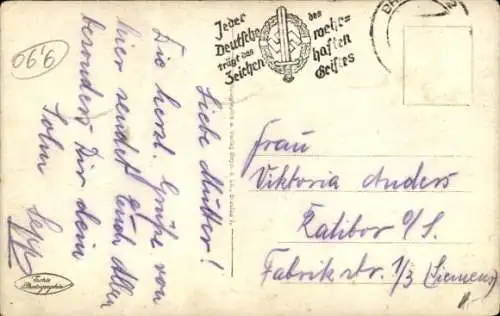 9,90
Liebe Mutter!
Die herzl. Grüße von
hier sendet Euch Allen
besonders Dir dein
Sohn
Sepp
Jeder
Deutsche
trägt das
Zeichen
des
wehr-
haften
Geistes
Frau
Viktoria Anders
Ratibor O/S.
Fabrikstr. 1/3 (Siemens)
Echte
Photographie